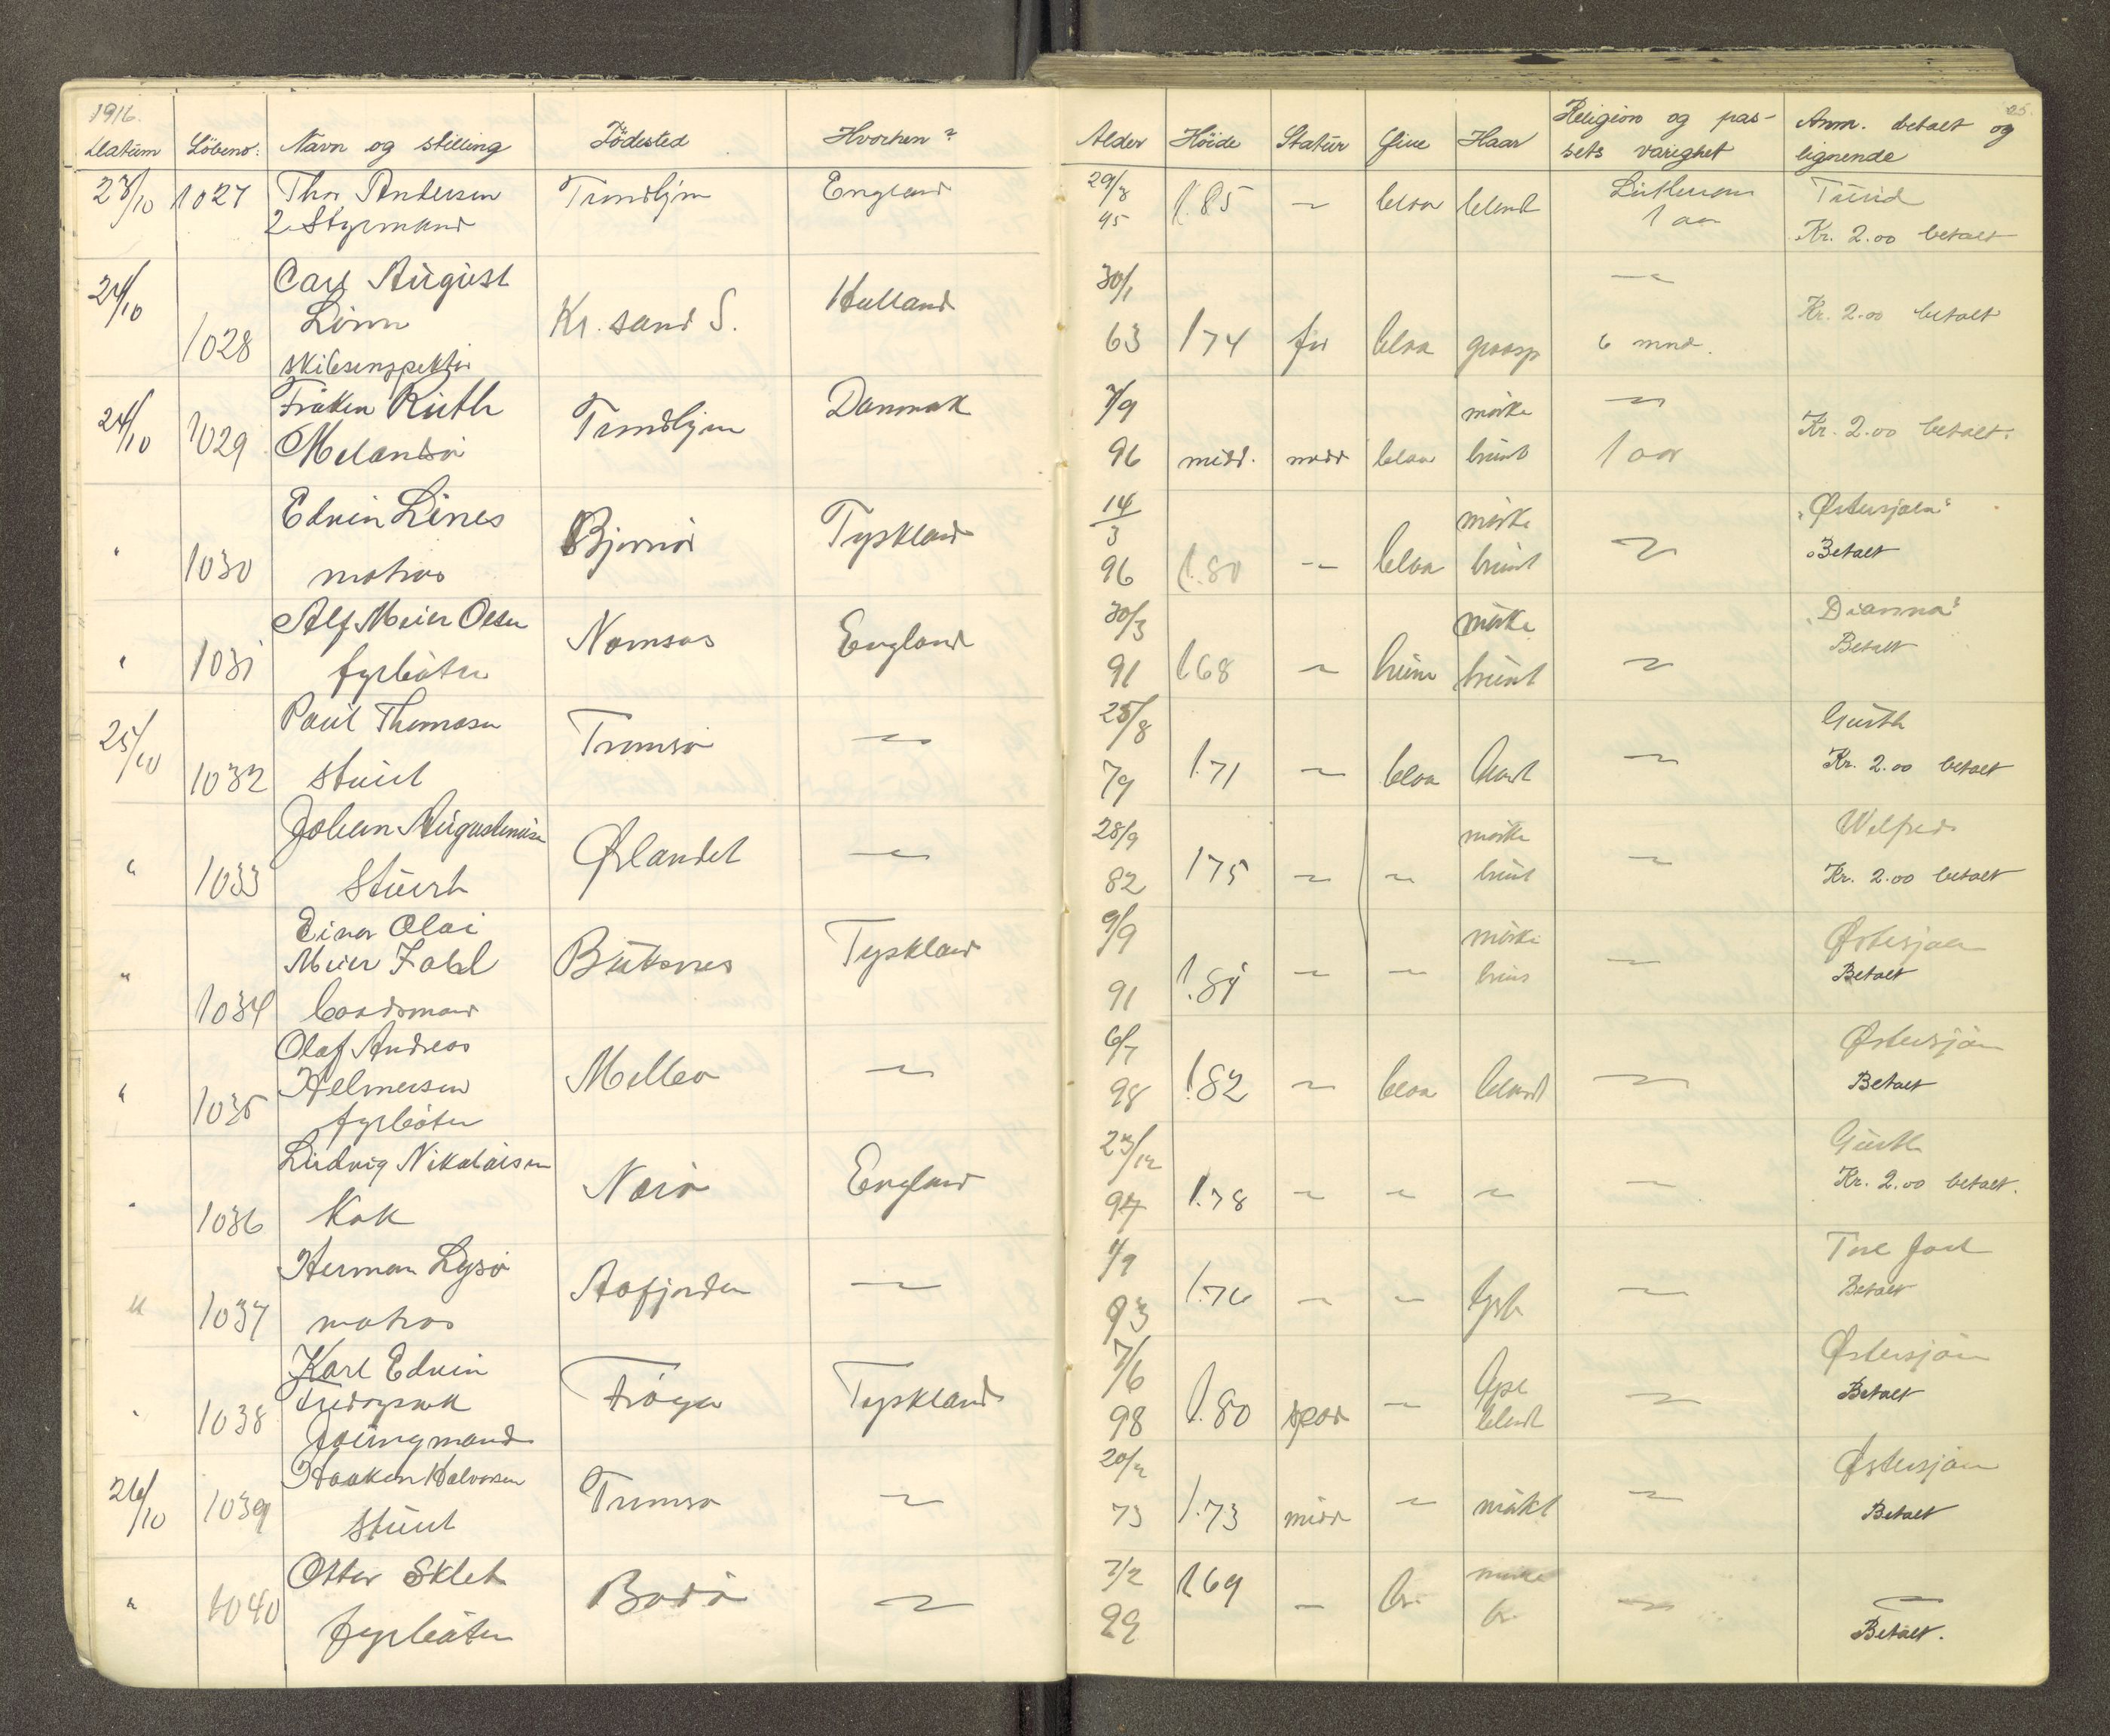 1916. 25.
Datum Löbeno: Navn og stilling Födested Hvorhen? Alder Höide Statur Öine Haar Religion og pas- Anm. betalt og
sets varighet lignende
23/10 1027 Thor Andersen Trondhjem England 29/8 1.85 ~ blaa blond Luthersk Turid
2 Styrmand 95 1 aar Kr. 2.00 betalt
24/10 Carl August 30/1 ~
1028 Linn Kr. sand S. Holland 63 174 før blaa graasp 6 mnd. Kr. 2.00 betalt
skibsinspektør
24/10 1029 Frøken Ruth Trondhjem Danmark 7/9 mørke ~ Kr. 2.00 betalt.
Melandsø 96 midd. midd blaa brunt 1 aar
" 1030 Edvin Lines Bjørnør Tyskland 14/3 mørke "Østersjøen"
matros 96 1.80 ~ blaa brunt ~ Betalt
" 1031 Alf Meier Olsen Namsos England 30/3 mørke "Dianna"
fyrbøter 91 168 ~ brune brunt ~ Betalt
25/10 1032 Paul Thomassen Tromsø ~ 25/8 Gurth
stuert 79 1.71 ~ blaa blond ~ Kr. 2.00 betalt
" 1033 Johan Augustinusen Ørlandet ~ 28/9 mørke Wilfred
Stuert 82 175 ~ ~ brunt ~ Kr. 2.00 betalt
" 1034 Einar Olai Buksnes Tyskland 9/9 mørke Østersjøen
Meier Zahl 91 1.84 ~ ~ brunt ~ Betalt
baadsmand
" 1035 Olaf Andreas Melbo ~ 6/7 Østersjøen
Helmersen 98 1.82 ~ blaa blondt ~ Betalt
fyrbøter
" 1036 Ludvig Nikolaisen Nærø England 23/12 Gurth
Kok 94 1.78 ~ ~ ~ ~ Kr. 2.00 betalt.
" 1037 Herman Lysø Aafjorden ~ 4/9 Tore Jarl
matros 93 1.76 ~ ~ lyst ~ Betalt
" 1038 Karl Edvin Frøya Tyskland 7/6 lyse Østersjøen
Fredagsvik 98 1.80 spæd ~ blondt ~ Betalt
Jungmand
26/10 1039 Haakon Halvorsen Tromsø ~ 20/2 Østersjøen
stuert 73 1.73 midd ~ mørkt ~ Betalt
" 1040 Otter Sklet Bodø ~ 7/2 169 ~ br. mørke ~
fyrbøter 99 br. Betalt.